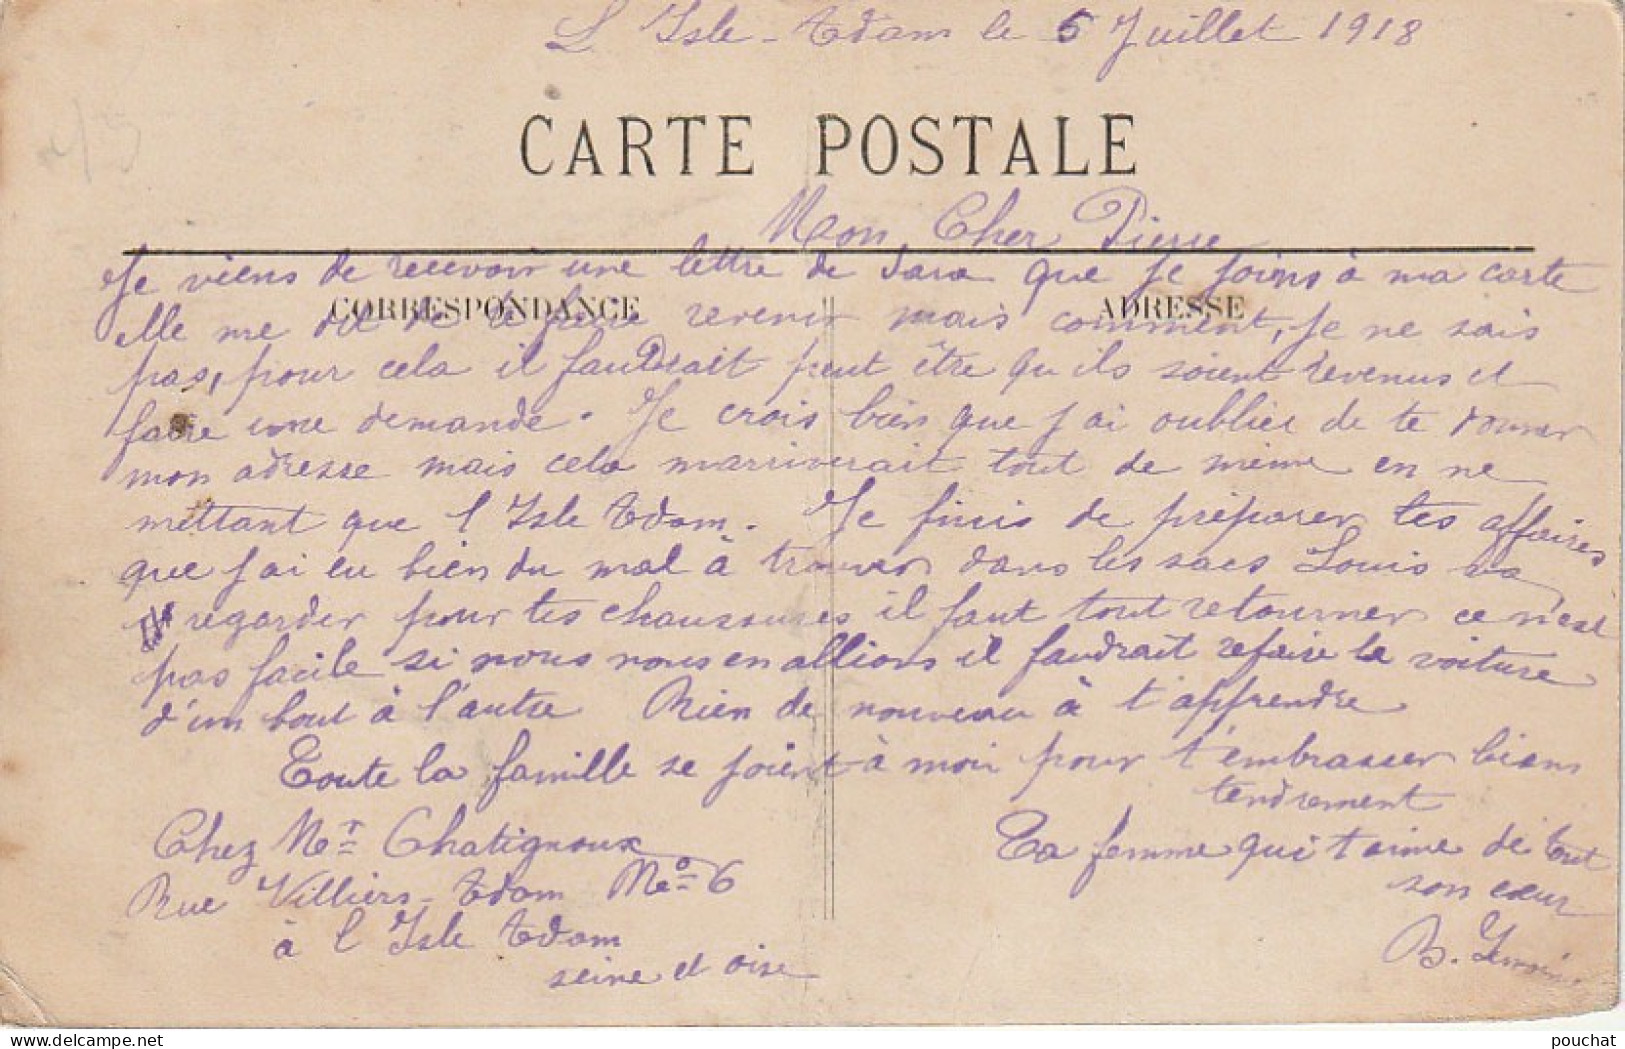 L'Isle-Adam le 5 Juillet 1918
CARTE POSTALE
Mon Cher Pierre
Je viens de recevoir une lettre de Sara que je joins à ma carte
CORRESPONDANCE
ADRESSE
elle me dit de te faire revenir mais comment, je ne sais
pas, pour cela il faudrait peut être qu'ils soient revenus et
faire une demande. Je crois bien que j'ai oublier de te donner
mon adresse mais cela marriverait tout de même en ne
mettant que l'Isle Adam. Je finis de préparer tes affaires
que j'ai eu bien du mal à trouver dans les sacs Louis va
regarder pour tes chaussures il faut tout retourner ce n'est
pas facile si nous nous en allions il faudrait refaire la voiture
d'un bout à l'autre Rien de nouveau à t'apprendre
Toute la famille se joient à moi pour t'embrasser bien
tendrement
Chez Mr Chatignoux
Ta femme qui t'aime de tout
Rue Villiers-Adam No 6
son cœur
à l'Isle Adam
B.
seine et oise
pouchat